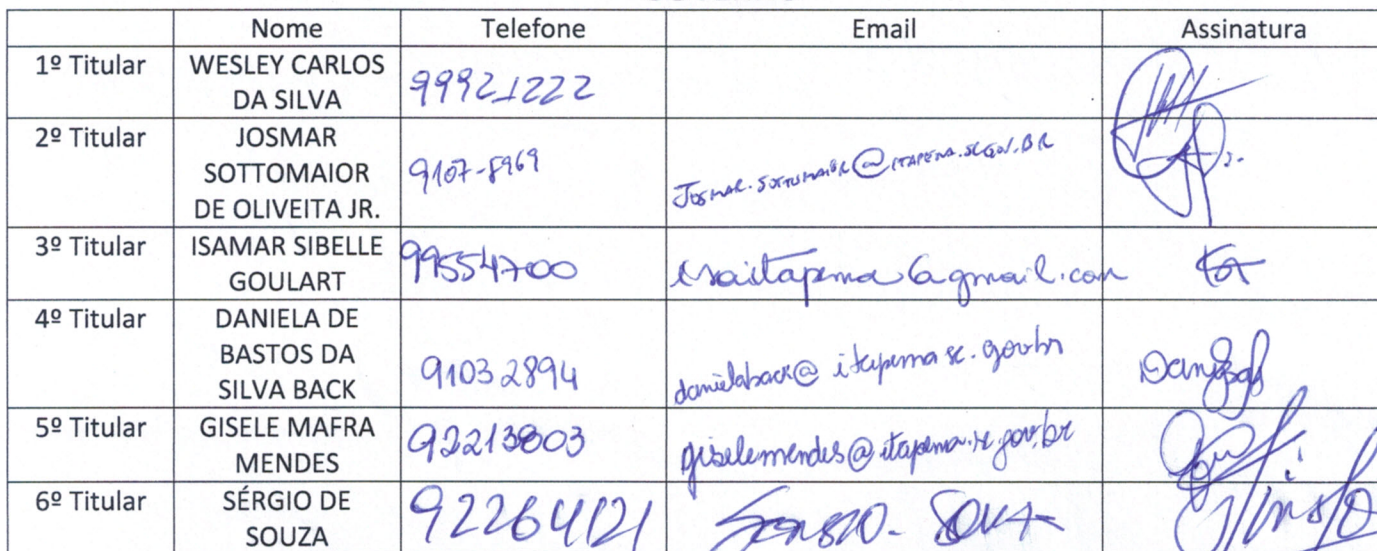 Nome Telefone Email Assinatura
1º Titular WESLEY CARLOS DA SILVA 99921222
2º Titular JOSMAR SOTTOMAIOR DE OLIVEITA JR. 9107-8969 JOSMAR.SOTTOMAIOR@ITAPEMA.SC.GOV.BR
3º Titular ISAMAR SIBELLE GOULART 99554700 isaitapema@gmail.com
4º Titular DANIELA DE BASTOS DA SILVA BACK 91032894 danielaback@itapema.sc.gov.br
5º Titular GISELE MAFRA MENDES 92213803 giselemendes@itapema.sc.gov.br
6º Titular SÉRGIO DE SOUZA 92264121